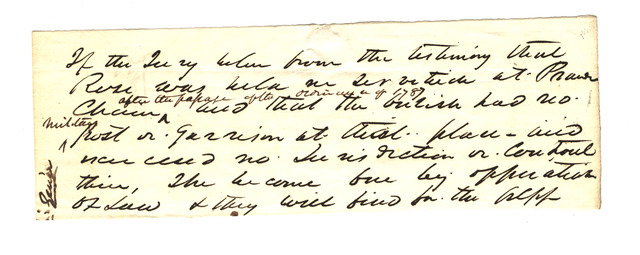 If the Jury belive from the testimony that
Rose was held in servitude at Prarie
after the passage of the ordinance of 1787
Chien and that the british had no
military
Post or Garrison at that place - and
exercised no Jurisdiction or Controul
there, She became free by opperation
of Law & they will find for the Plff